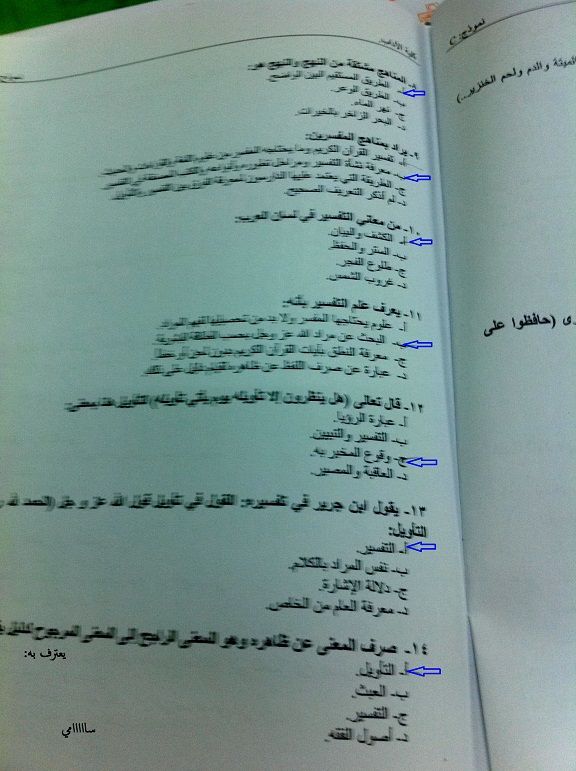 كلية الآداب
نموذج:
٨- المناهج مشتقة من النهج والنهج هو:
أ- الطريق المستقيم البين الواضح.
ب- الطريق الوعر.
ج- نهر الماء.
د- البحر الزاخر بالخيرات.
٩- يراد بمناهج المفسرين:
أ- تفسير القرآن الكريم وما يحتاجه المفسر من علوم اللغة والقراءات
ب- معرفة نشأة التفسير ومراحل تطوره وأنواعه والكتب المصنفة في التفسير
ج- الطريقة التي يعتمد عليها الدارسون لمعرفة الفرق بين التفسير والتأويل.
د- لم أتذكر التعريف الصحيح.
١٠- من معاني التفسير في لسان العرب:
أ- الكشف والبيان.
ب- الستر والحفظ.
ج- طلوع الفجر.
د- غروب الشمس.
١١- يعرف علم التفسير بأنه:
أ- علوم يحتاجها المفسر ولا بد من تحصيلها لفهم المراد.
ب- البحث عن مراد الله عز وجل بحسب الطاقة البشرية.
ج- معرفة النطق بآيات القرآن الكريم بدون لحن أو خطأ.
د- عبارة عن صرف اللفظ عن ظاهره لقيام دليل على ذلك.
١٢- قال تعالى (هل ينظرون إلا تأويله يوم يأتي تأويله) التأويل هنا بمعنى:
أ- عبارة الرؤيا.
ب- التفسير والتبيين.
ج- وقوع المخبر به.
د- العاقبة والمصير.
١٣- يقول ابن جرير في تفسيره: القول في تأويل قول الله عز و جل (الصمد
التأويل:
أ- التفسير.
ب- نفس المراد بالكلام.
ج- دلالة الإشارة.
د- معرفة العام من الخاص.
١٤- صرف المعنى عن ظاهره وهو المعنى الراجح إلى المعنى المرجوح لدليل
يعترف به:
أ- التأويل.
ب- العبث.
ج- التفسير.
د- أصول الفقه.
ساااااامي
الميتة والدم ولحم الخنزير..)
(حافظوا على